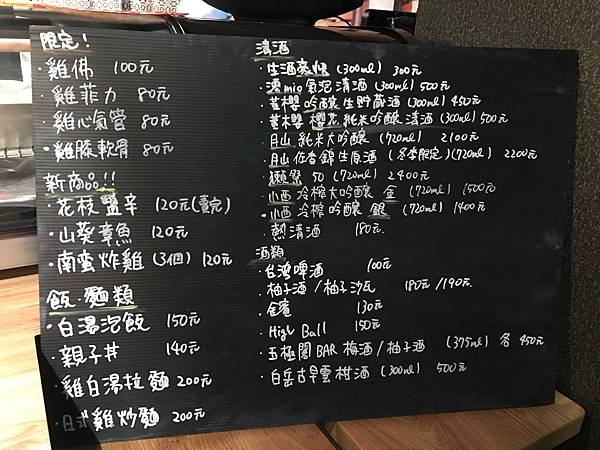 限定!
・雞佛 100元
・雞菲力 80元
・雞心氣管 80元
・雞膝軟骨 80元
新商品!!
・花枝鹽辛 120元(賣完)
・山葵章魚 120元
・南蛮炸雞(3個) 120元
飯.麵類
・白湯泡飯 150元
・親子丼 140元
・雞白湯拉麵 200元
・日式雞炒麵 200元
清酒
・生酒豪快 (300ml) 300元
・澪mio氣泡清酒 (300ml) 500元
・黃櫻吟釀生貯藏酒 (300ml) 450元
・黃櫻 櫻花純米吟釀清酒 (300ml) 500元
・月山純米大吟釀 (720ml) 2100元
・月山佐香錦生原酒 (冬季限定)(720ml) 2200元
・獺祭 50 (720ml) 2400元
・小西冷榨大吟釀 金 (720ml) 1500元
・小西 冷榨吟釀 銀 (720ml) 1400元
・熱清酒 180元.
酒類
・台灣啤酒 100元
・柚子酒/柚子沙瓦 180元/190元.
・金賓 130元
・High Ball 150元
・五極閣BAR梅酒/柚子酒 (375ml) 各 450元
・白岳古早雲柑酒 (300ml) 500元